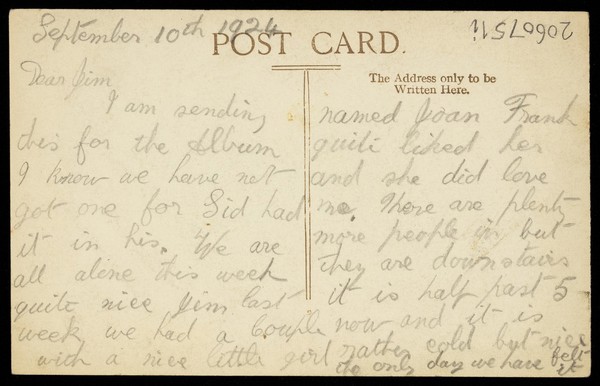 September 10th 1924
POST CARD.
2060751i
The Address only to be
Written Here.
Dear Jim
I am sending
this for the Album
I know we have not
got one for Sid had
it in his. We are
all alone this week
quite nice Jim last
week we had a Couple
with a nice little girl
named Joan Frank
quite liked her
and she did love
me. There are plenty
more people in but
they are downstairs
it is half past 5
now and it is
rather cold but nice
the only day we have felt
it